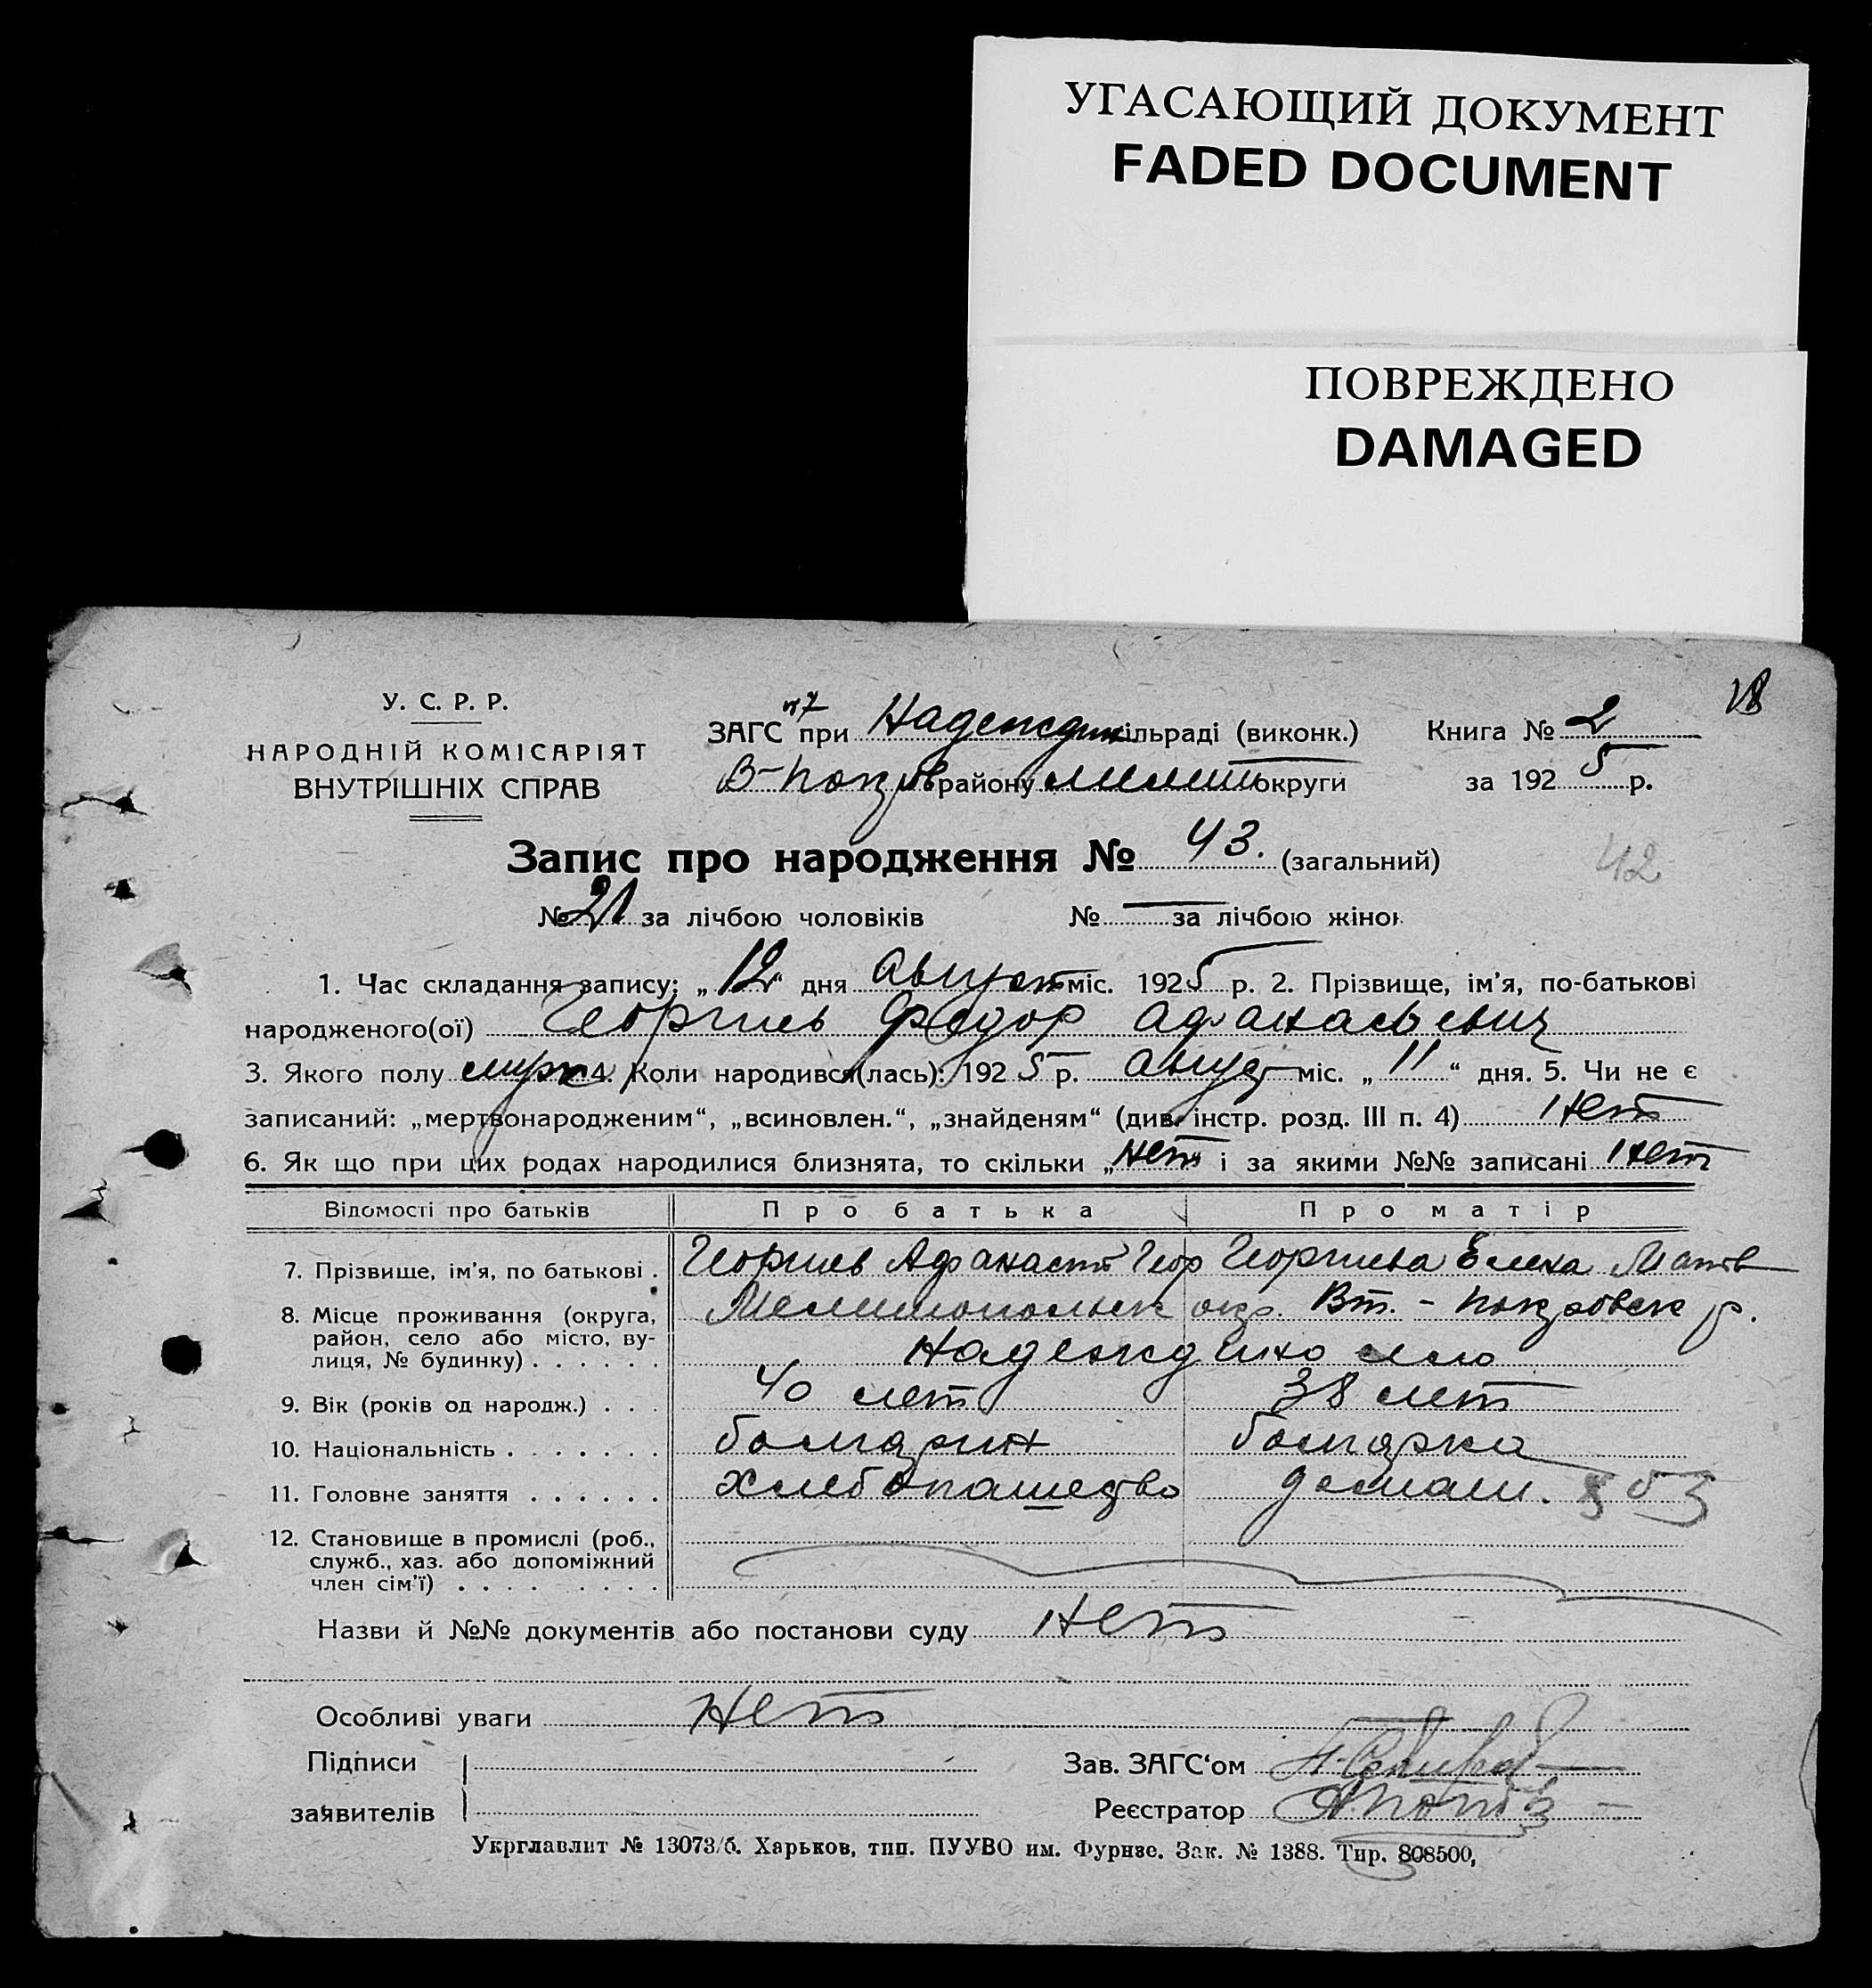 УГАСАЮЩИЙ ДОКУМЕНТ
FADED DOCUMENT
ПОВРЕЖДЕНО
DAMAGED
У. С. Р. Р.
НАРОДНІЙ КОМІСАРІЯТ
ВНУТРІШНІХ СПРАВ
ЗАГС при Надеждин сільраді (виконк.)
В-Покров району Мелит округи
Книга № 2
за 1925 р.
Запис про народження № 43. (загальний)
42
№ 21 за лічбою чоловіків № — за лічбою жінок
1. Час складання запису: „12“ дня Август міс. 1925 р. 2. Прізвище, ім’я, по-батькові
народженого(ої) Георгиев Федор Афанасьевич
3. Якого полу муж 4. Коли народився(лась): 1925 р. Август міс. „11“ дня. 5. Чи не є
записаний: „мертвонародженим“, „всиновлен.“, „знайденям“ (див. інстр. розд. III п. 4) Нет
6. Як що при цих родах народилися близнята, то скільки „Нет і за якими №№ записані Нет
Відомості про батьків Про батька Про матір
7. Прізвище, ім’я, по батькові . Георгиев Афанасий Геор Георгиева Елена Матв
8. Місце проживання (округа, Мелитопольск окр. Вт. - Покровск р.
район, село або місто, ву-
лиця, № будинку) . . . . . . Надеждино село
9. Вік (років од народж.) . . . 40 лет 38 лет
10. Національність . . . . . . . болгарин болгарка
11. Головне заняття . . . . . . Хлебопашество домаш.
12. Становище в промислі (роб.,
служб., хаз. або допоміжний
член сім’ї) . . . . . . . .
Назви й №№ документів або постанови суду Нет
Особливі уваги Нет
Підписи Зав. ЗАГС‘ом
заявителів Реєстратор
Укрглавлит № 13073/б. Харьков, тип. ПУУВО им. Фурнзе. Зак. № 1388. Тир. 808500,